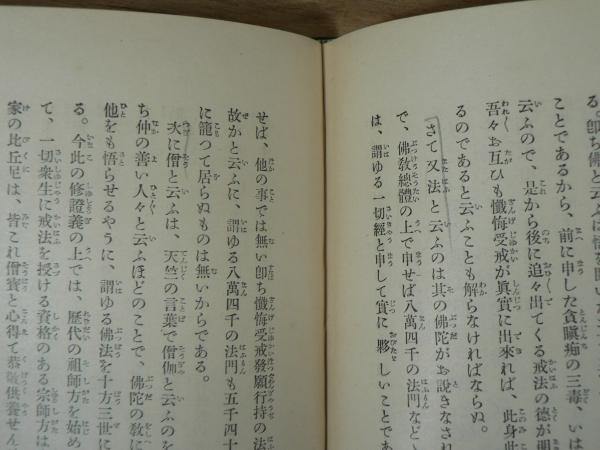 る。卽ち佛と云ふは悟を開い
ことであるから、前に申した貪瞋痴の三毒、いは
云ふので、是から後に追々出てくる戒法の德が明
吾々お互ひも懺悔受戒が眞實に出來れば、此身此
るのであると云ふことも解らなければならぬ。
さて又法と云ふのは其の佛陀がお說きなされ
で、佛敎總體の上で申せば八萬四千の法門など
は、謂ゆる一切經と申して實に夥しいことであ
せば、他の事では無い卽ち懺悔受戒發願行持の法
故かと云ふに、謂ゆる八萬四千の法門も五千四十
に籠つて居らぬものは無いからである。
次に僧と云ふは、天竺の言葉で僧伽と云ふのを
ち仲の善い人々と云ふほどのことで、佛陀の敎に
他をも悟らせるやうに、謂ゆる佛法を十方三世に
る。今此の修證義の上では、歷代の祖師方を始め
て、一切衆生に戒法を授ける資格のある宗師方は
家の比丘尼は、皆これ僧寶と心得て恭敬供養せん